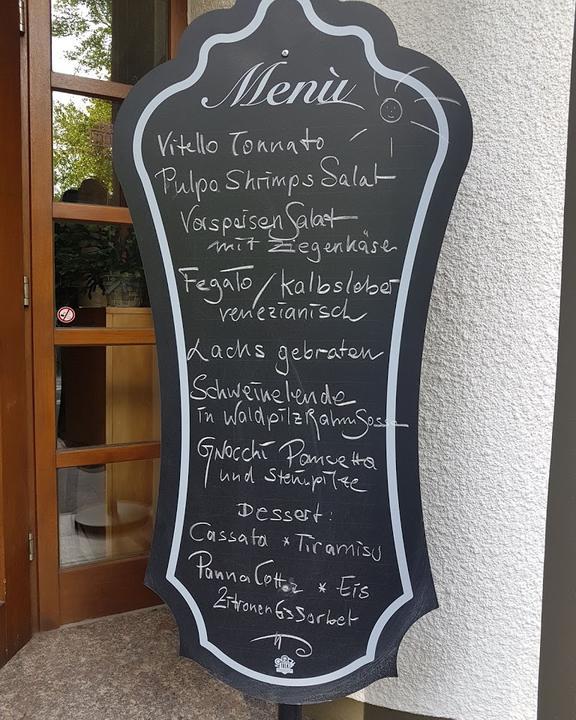 Menù
Vitello Tonnato
Pulpo Shrimps Salat
Vorspeisen Salat
mit Ziegenkäse
Fegato / Kalbsleber
venezianisch
Lachs gebraten
Schweinelende
in Waldpilz Rahm Sosse
Gnocchi Pancetta
und Steinpilze
Dessert:
Cassata * Tiramisu
Panna Cotta * Eis
Zitronen Eis Sorbet